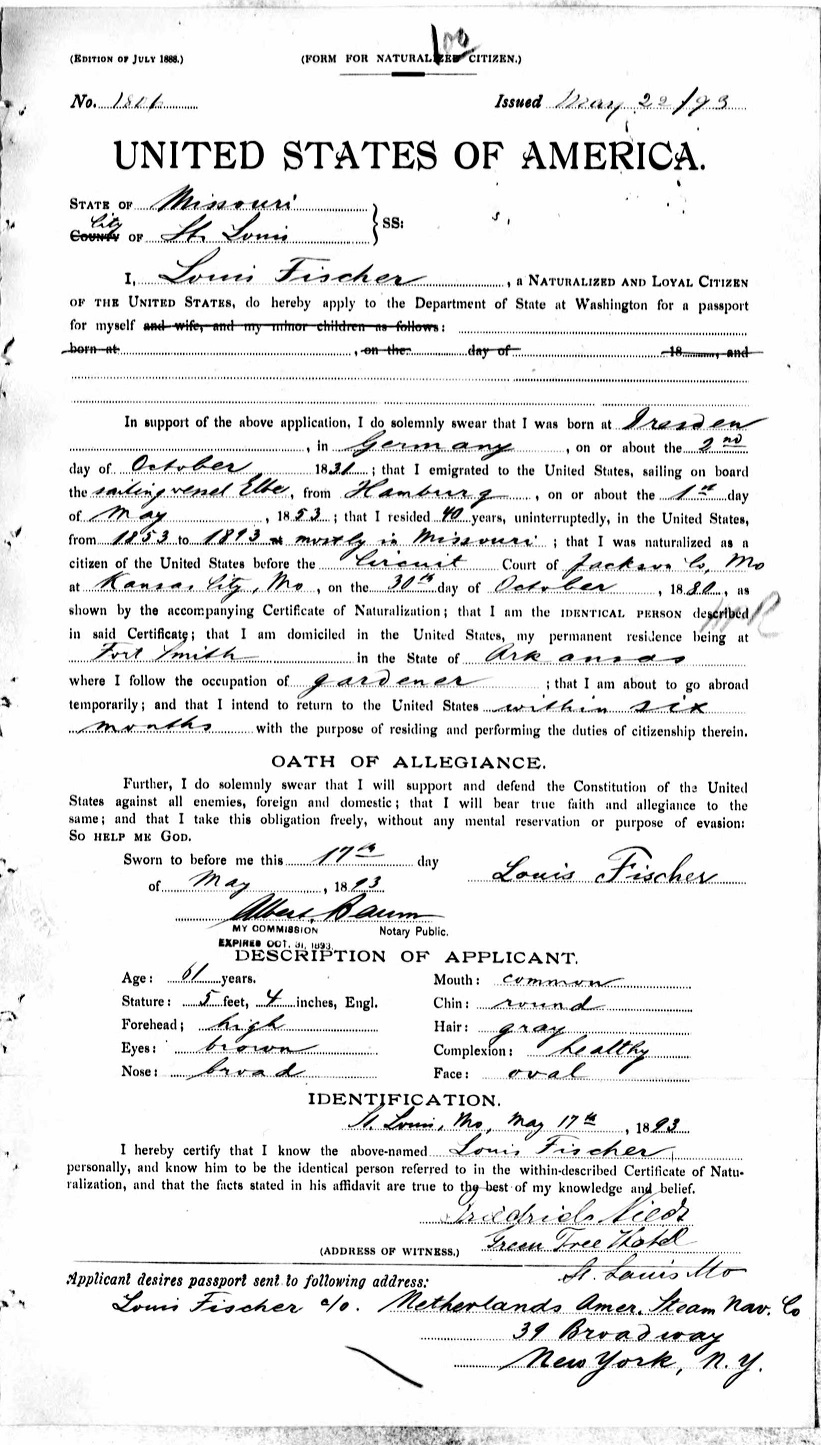 (EDITION OF JULY 1888.) (FORM FOR NATURALIZED CITIZEN.)
No. 1806 Issued May 22/93
UNITED STATES OF AMERICA.
STATE OF Missouri
City
COUNTY OF St. Louis } SS:
I, Louis Fischer, a NATURALIZED AND LOYAL CITIZEN
OF THE UNITED STATES, do hereby apply to the Department of State at Washington for a passport
for myself and wife, and my minor children as follows:
born at , on the day of 18 , and
In support of the above application, I do solemnly swear that I was born at Dresden
, in Germany, on or about the 2nd
day of October 1831; that I emigrated to the United States, sailing on board
the sailing vessel Elbe, from Hamburg, on or about the 1st day
of May, 1853; that I resided 40 years, uninterruptedly, in the United States,
from 1853 to 1893 mostly in Missouri; that I was naturalized as a
citizen of the United States before the Circuit Court of Jackson Co, Mo
at Kansas City, Mo, on the 30th day of October, 1880, as
shown by the accompanying Certificate of Naturalization; that I am the IDENTICAL PERSON described
in said Certificate; that I am domiciled in the United States, my permanent residence being at
Fort Smith in the State of Arkansas
where I follow the occupation of gardener; that I am about to go abroad
temporarily; and that I intend to return to the United States within six
months with the purpose of residing and performing the duties of citizenship therein.
OATH OF ALLEGIANCE.
Further, I do solemnly swear that I will support and defend the Constitution of the United
States against all enemies, foreign and domestic; that I will bear true faith and allegiance to the
same; and that I take this obligation freely, without any mental reservation or purpose of evasion:
SO HELP ME GOD.
Sworn to before me this 17th day
of May, 1893 Louis Fischer
Albert Baum
MY COMMISSION Notary Public.
EXPIRES OCT. 31, 1893.
DESCRIPTION OF APPLICANT.
Age: 61 years. Mouth: common
Stature: 5 feet, 4 inches, Engl. Chin: round
Forehead; high Hair: gray
Eyes: brown Complexion: healthy
Nose: broad Face: oval
IDENTIFICATION.
St. Louis, Mo, May 17th, 1893
I hereby certify that I know the above-named Louis Fischer
personally, and know him to be the identical person referred to in the within-described Certificate of Natu-
ralization, and that the facts stated in his affidavit are true to the best of my knowledge and belief.
Friedrich
(ADDRESS OF WITNESS.) Green Tree Hotel
St. Louis Mo
Applicant desires passport sent to following address:
Louis Fischer c/o. Netherlands Amer. Steam Nav. Co
39 Broadway
New York, N.Y.